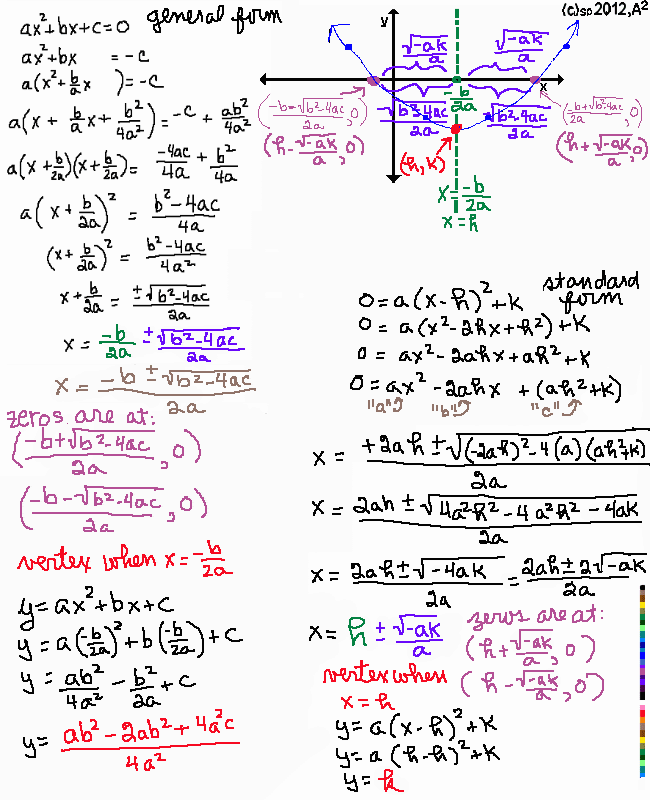 ax²+bx+c=0 general form
ax²+bx = -c
a(x²+b/a x )=-c
a(x + b/a x + b²/4a²)=-c + ab²/4a²
a(x + b/2a)(x + b/2a)= -4ac/4a + b²/4a
a(x + b/2a)² = b²-4ac/4a
(x + b/2a)² = b²-4ac/4a²
x + b/2a = ±√b²-4ac/2a
x = -b/2a ± √b²-4ac/2a
x = -b ± √b²-4ac/2a
zeros are at:
(-b+√b²-4ac/2a, 0)
(-b-√b²-4ac/2a, 0)
vertex when x = -b/2a
y = ax²+bx+c
y = a(-b/2a)²+b(-b/2a)+c
y = ab²/4a² - b²/2a + c
y = ab²-2ab²+4a²c/4a²
(c)SD2012,A²
y
√-ak/a √-ak/a
x
-b/2a
(-b-√b²-4ac/2a, 0)
√b²-4ac/2a √b²-4ac/2a
(-b+√b²-4ac/2a, 0)
(h-√-ak/a, 0)
(h+√-ak/a, 0)
(h,k)
x = -b/2a
x = h
standard form
0 = a(x-h)²+k
0 = a(x²-2hx+h²)+k
0 = ax²-2ahx+ah²+k
0 = ax²-2ahx +(ah²+k)
"a" "b" "c"
x = +2ah ± √(-2ah)²-4(a)(ah²+k)/2a
x = 2ah ± √4a²h²-4a²h²-4ak/2a
x = 2ah ± √-4ak/2a = 2ah ± 2√-ak/2a
x = h ± √-ak/a
zeros are at:
(h+√-ak/a, 0)
(h-√-ak/a, 0)
vertex when
x = h
y = a(x-h)²+k
y = a(h-h)²+k
y = k